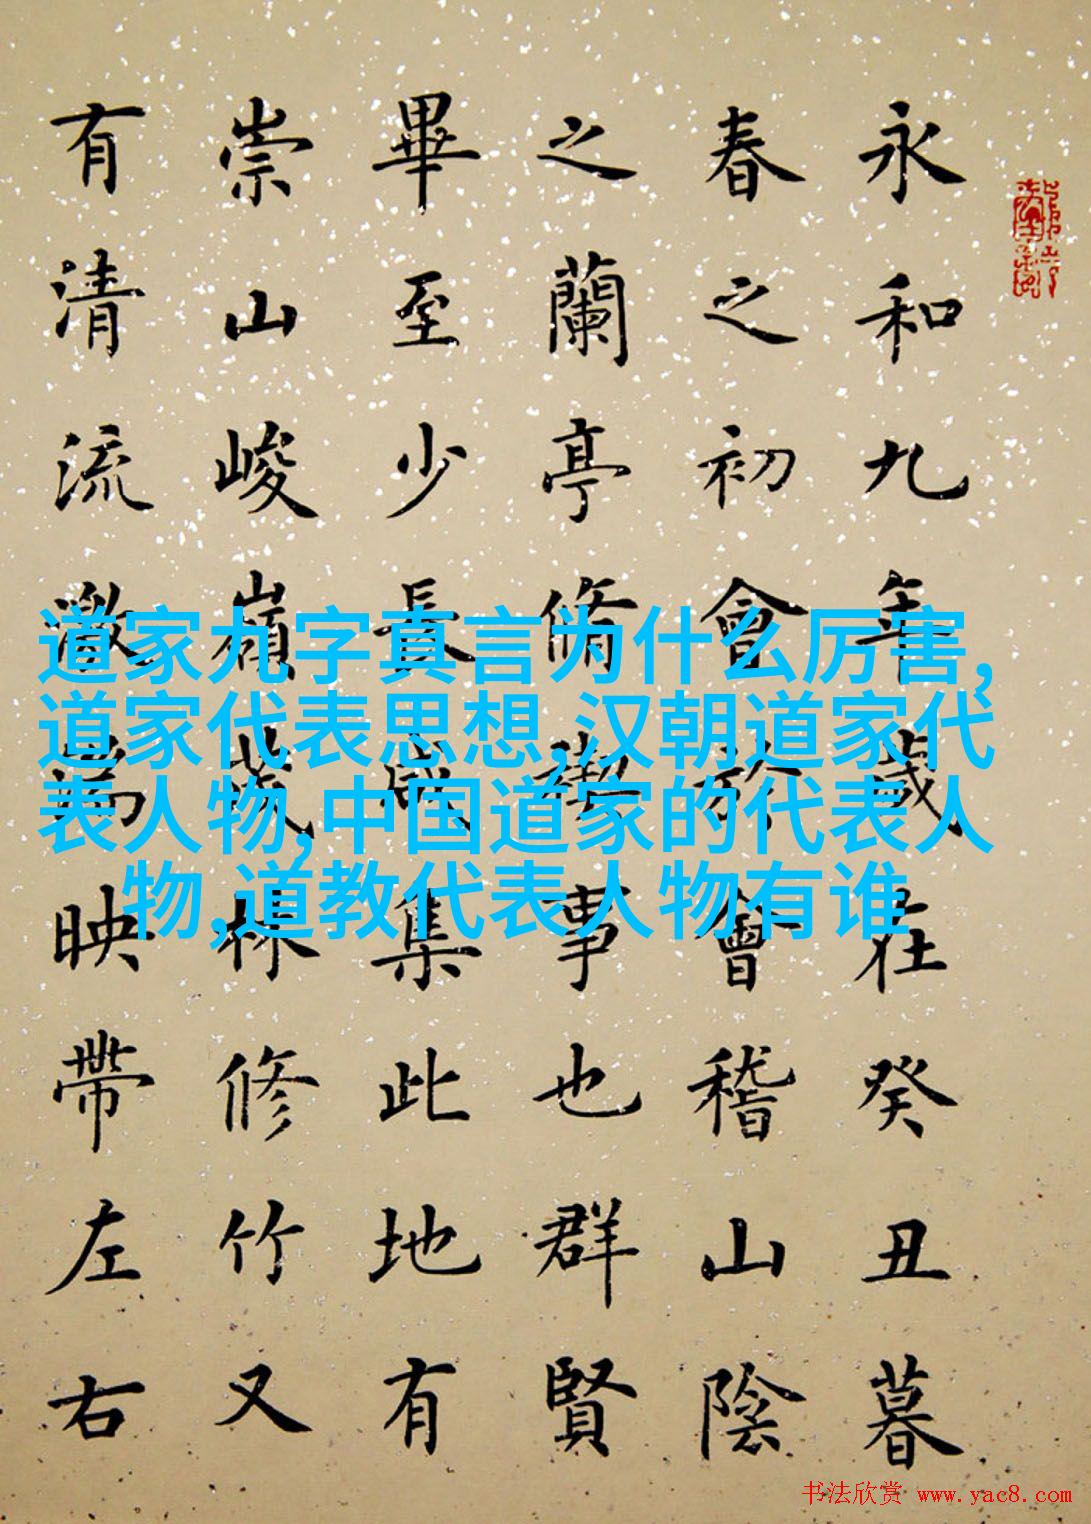 永和九年歲在癸丑暮
春之初會於會稽山陰
之蘭亭脩禊事也群賢
畢至少長咸集此地有
崇山峻嶺茂林修竹又
有清流激湍映帶左右
道家九字真言为什么厉害,
道家代表思想,汉朝道家代
表人物,中国道家的代表人
物,道教代表人物有谁
书法欣赏 www.yac8.com